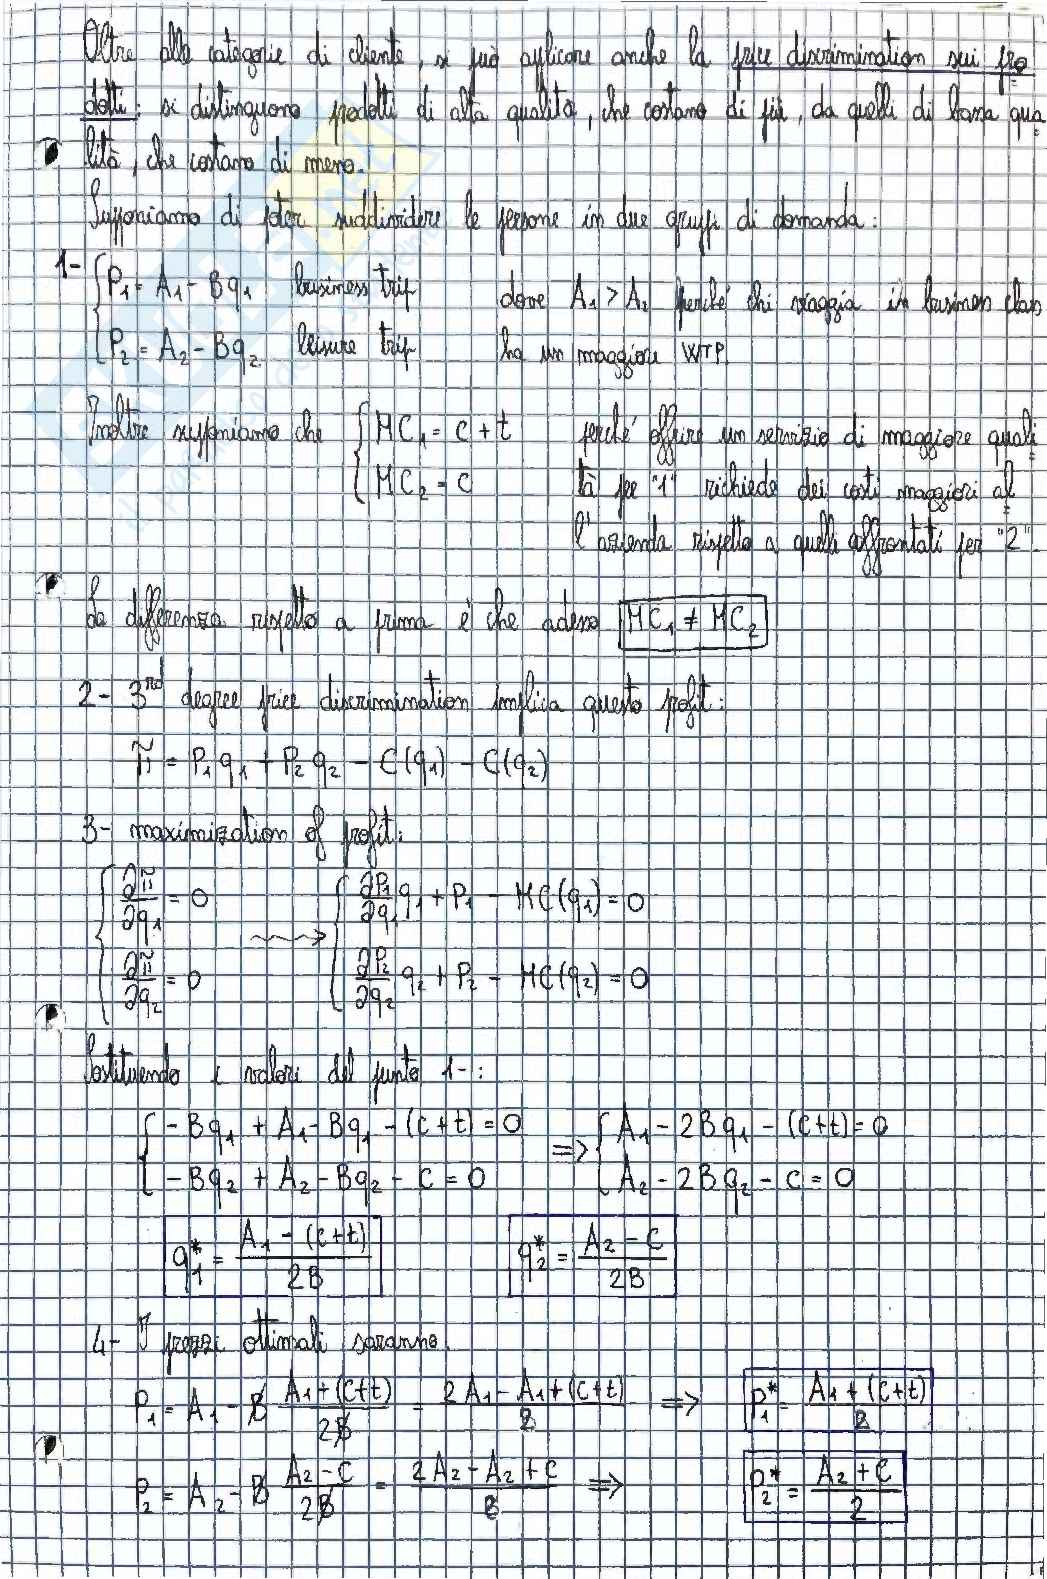 Oltre alle categorie di cliente, si può applicare anche la price discrimination sui pro
dotti: si distinguono prodotti di alta qualità, che costano di più, da quelli di bassa qua=
lità, che costano di meno.
Supponiamo di poter suddividere le persone in due gruppi di domanda:
1- { P₁ = A₁ - Bq₁ business trip dove A₁ > A₂ perché chi viaggia in business class
P₂ = A₂ - Bq₂ leisure trip ha un maggiore WTP.
Inoltre supponiamo che { MC₁ = c + t perché offrire un servizio di maggiore quali=
MC₂ = c tà per "1" richiede dei costi maggiori al=
l'azienda rispetto a quelli affrontati per "2".
La differenza rispetto a prima è che adesso MC₁ ≠ MC₂
2- 3rd degree price discrimination implica questo profit:
π̃ = P₁q₁ + P₂q₂ - C(q₁) - C(q₂)
3- maximization of profit:
{ ∂π̃/∂q₁ = 0 ⇝ { ∂P₁/∂q₁ q₁ + P₁ - MC(q₁) = 0
∂π̃/∂q₂ = 0 ∂P₂/∂q₂ q₂ + P₂ - MC(q₂) = 0
Sostituendo i valori del punto 1-:
{ -Bq₁ + A₁ - Bq₁ - (c+t) = 0 => { A₁ - 2Bq₁ - (c+t) = 0
-Bq₂ + A₂ - Bq₂ - c = 0 A₂ - 2Bq₂ - c = 0
q₁* = (A₁ - (c+t))/2B q₂* = (A₂ - c)/2B
4- I prezzi ottimali saranno:
P₁ = A₁ - B (A₁ + (c+t))/2B = (2A₁ - A₁ + (c+t))/2 => P₁* = (A₁ + (c+t))/2
P₂ = A₂ - B (A₂ - c)/2B = (2A₂ - A₂ + c)/2 => P₂* = (A₂ + c)/2